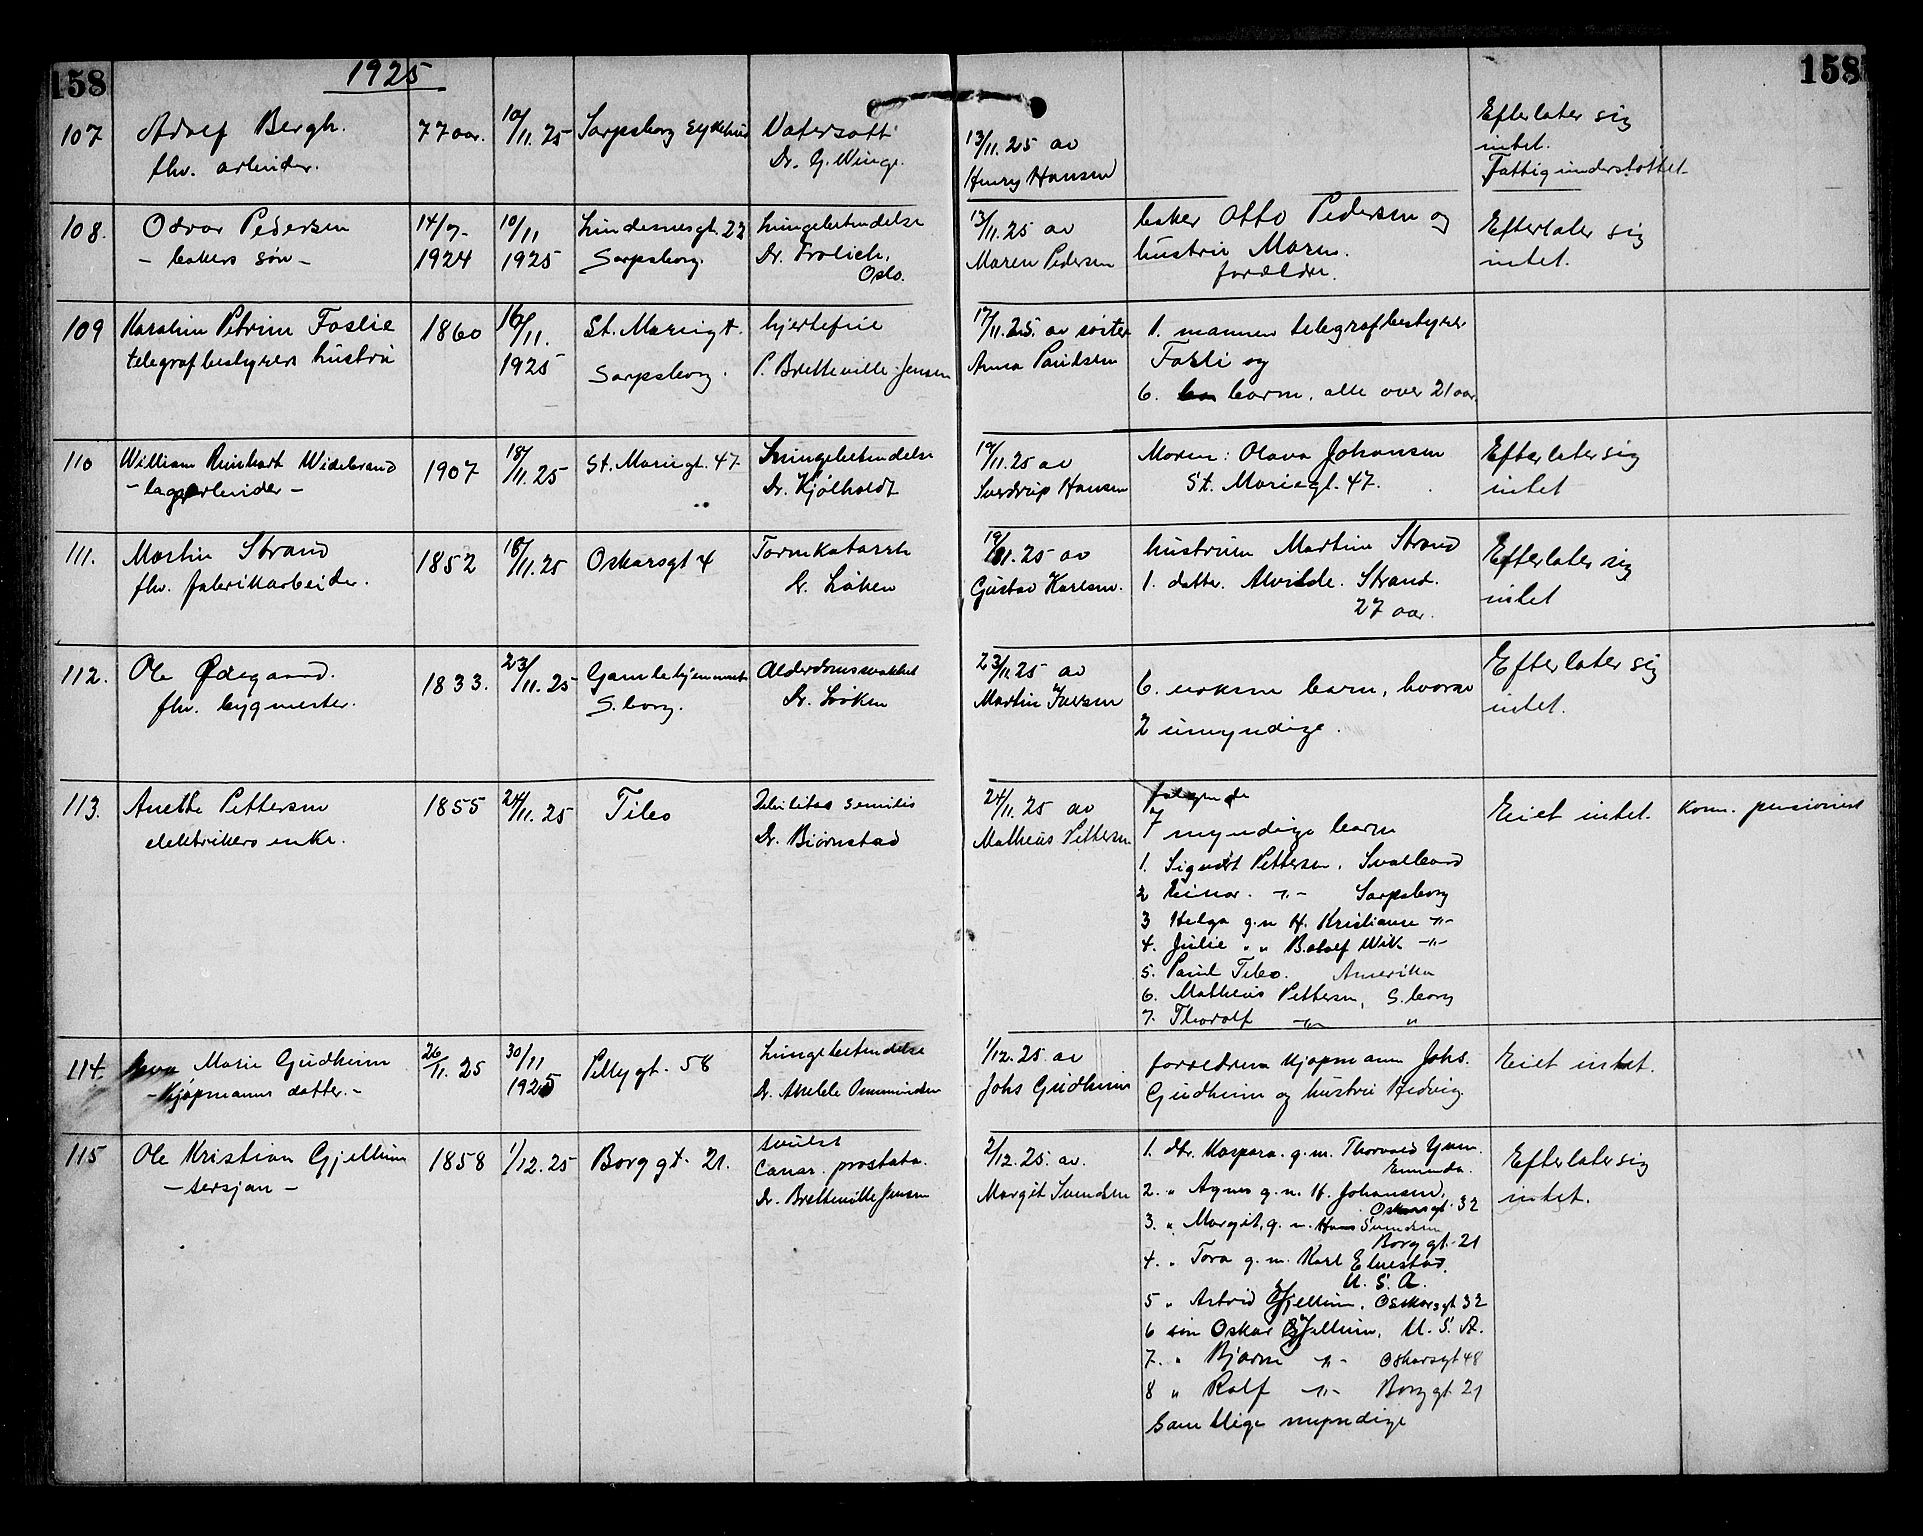 158
1925
158
107
Adolf Bergh.
fhv. arbeider.
77 aar.
10/11.25
Sarpsborg sykehus
Vatersott
Dr. G. Winge.
13/11.25 av
Henry Hansen
Efterlater sig
intet.
Fattigunderstøttet
108.
Odvar Pedersen
- bakers søn -
14/7-
1924
10/11
1925
Lindesnesgt. 22
Sarpsborg.
Lungebetendelse
Dr. Frolich,
Oslo.
13/11.25 av
Maren Pedersen
baker Otto Pedersen og
hustru Maren.
forældre.
Efterlater sig
intet.
109
Petrine Foslie
telegrafbestyrers hustru
1860
16/11.
1925
St. Mariegt.
Sarpsborg.
hjertefeil
P. Bretteville-Jensen
17/11.25. av søster
Anna Paulsen
1. mannen telegrafbestyrer
Fosli og
6. barn, alle over 21 aar.
110
William Reinhart Widebrand
- lagerarbeider -
1907
18/11.25
St. Mariegt. 47
Lungebetendelse
Dr. Kjølholdt
19/11.25 av
Sverdrup Hansen
Moren: Olava Johansen
St. Mariegt. 47.
Efterlater sig
intet
111.
Martin Strand
fhv. fabrikarbeider.
1852
18/11.25
Oskarsgt 4
Tarmkatarrh
Dr. Løken
19/11.25 av
Gustav Karlsen.
hustruen Martine Strand
1. datter. Alvilde. Strand.
27 aar.
Efterlater sig
intet
112.
Ole Ødegaard.
fhv. bygmester.
1833.
23/11.25
Gamlehjemmet
S.borg.
Alderdomssvakhet
Dr. Løken
23/11.25 av
Martin Iversen
6. voksne barn, hvorav
2 umyndige.
Efterlater sig
intet.
113.
Anette Pettersen
elektrikers enke.
1855
24/11.25
Tibo
Debilitas senilis
Dr. Bjørnstad
24/11.25 av
Matheus Pettersen
følgende
7 myndige barn
1. Sigurt Pettersen, Svalbard
2 Einar. -"- Sarpsborg
3 Helga g.m H. Kristianse -"-
4. Julie " " B.olof Wik -"-
5. Paul Tibo. Amerika
6. Matheus Pettersen, S.borg
7. Thorolf -"- "
Eiet intet.
Kom. pensionist
114.
Marie Gudheim
- Kjøpmanns datter. -
26/11.25
30/11
1925
Pellygt. 58
Lungebetendelse
1/12.25. av
Johs Gudheim
forældrene Kjøpmann Johs.
Gudheim og hustru Hedvig.
Eiet intet.
115
Ole Kristian Gjellum
- sersjan -
1858
1/12.25
Borggt. 21.
svulst
Cancr. prostata.
Dr. Bretteville Jensen
2/12.25. av.
Margit Svendsen
1. dtr. Kaspara. g.m. Thorvald
2. " Agnes g.m. H. Johansen,
Oskarsgt. 32
3. " Margit, g.m. Hans Svendsen
Borggt. 21
4. " Tora g.m. Karl
U. S. A.
5 " Astrid Gjellum, Oskarsgt 32
6 søn Oskar Gjellum, U. S. A.
7. " Bjarne -"- Oskarsgt 48
8 " Rolf -"- Borggt. 21
Samtlige myndige
Efterlater sig
intet.